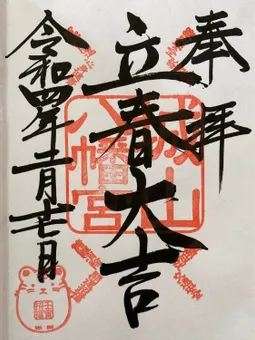 奉拝
立春大吉
令和四年二月廿七日
城山
八幡宮